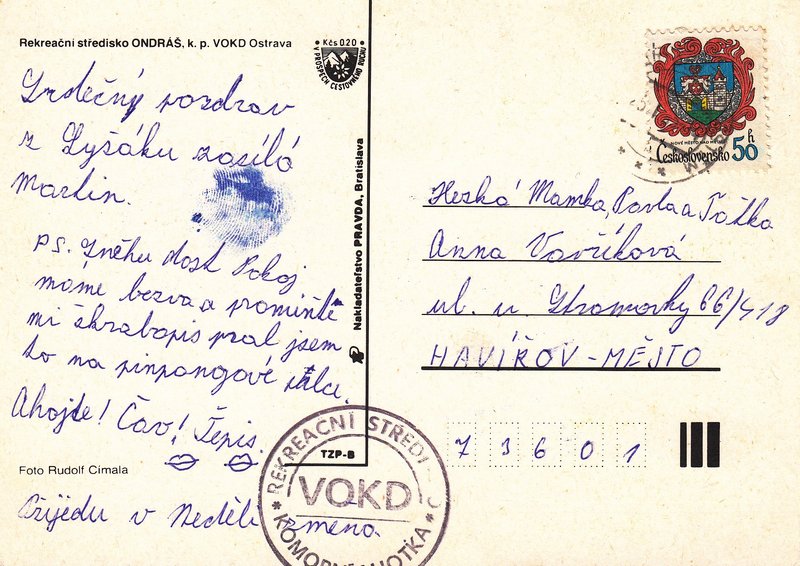 Rekreační středisko ONDRÁŠ, k. p. VOKD Ostrava
Kčs 0.20
V PROSPĚCH CESTOVNÉHO RUCHU
Srdečný pozdrav
z Lysáku zasílá
Martin.
PS. Sněhu dost Pokoj
máme bezva a promiňte
mi škrabopis psal jsem
to na pinpongové
Ahojte! Čav!
Foto Rudolf Cimala
Přijedu v Neděli změna.
Nakladateľstvo PRAVDA, Bratislava
TZP-B
REKREAČNÍ STŘEDI
VOKD
KOMORNÍ LHOTKA
NOVÉ MĚSTO NAD METUJÍ
Československo 50 h
Hezká Mamka, Pavla a Taťka
Anna Vavříková
ul. u Stromovky 66/418
HAVÍŘOV-MĚSTO
73601